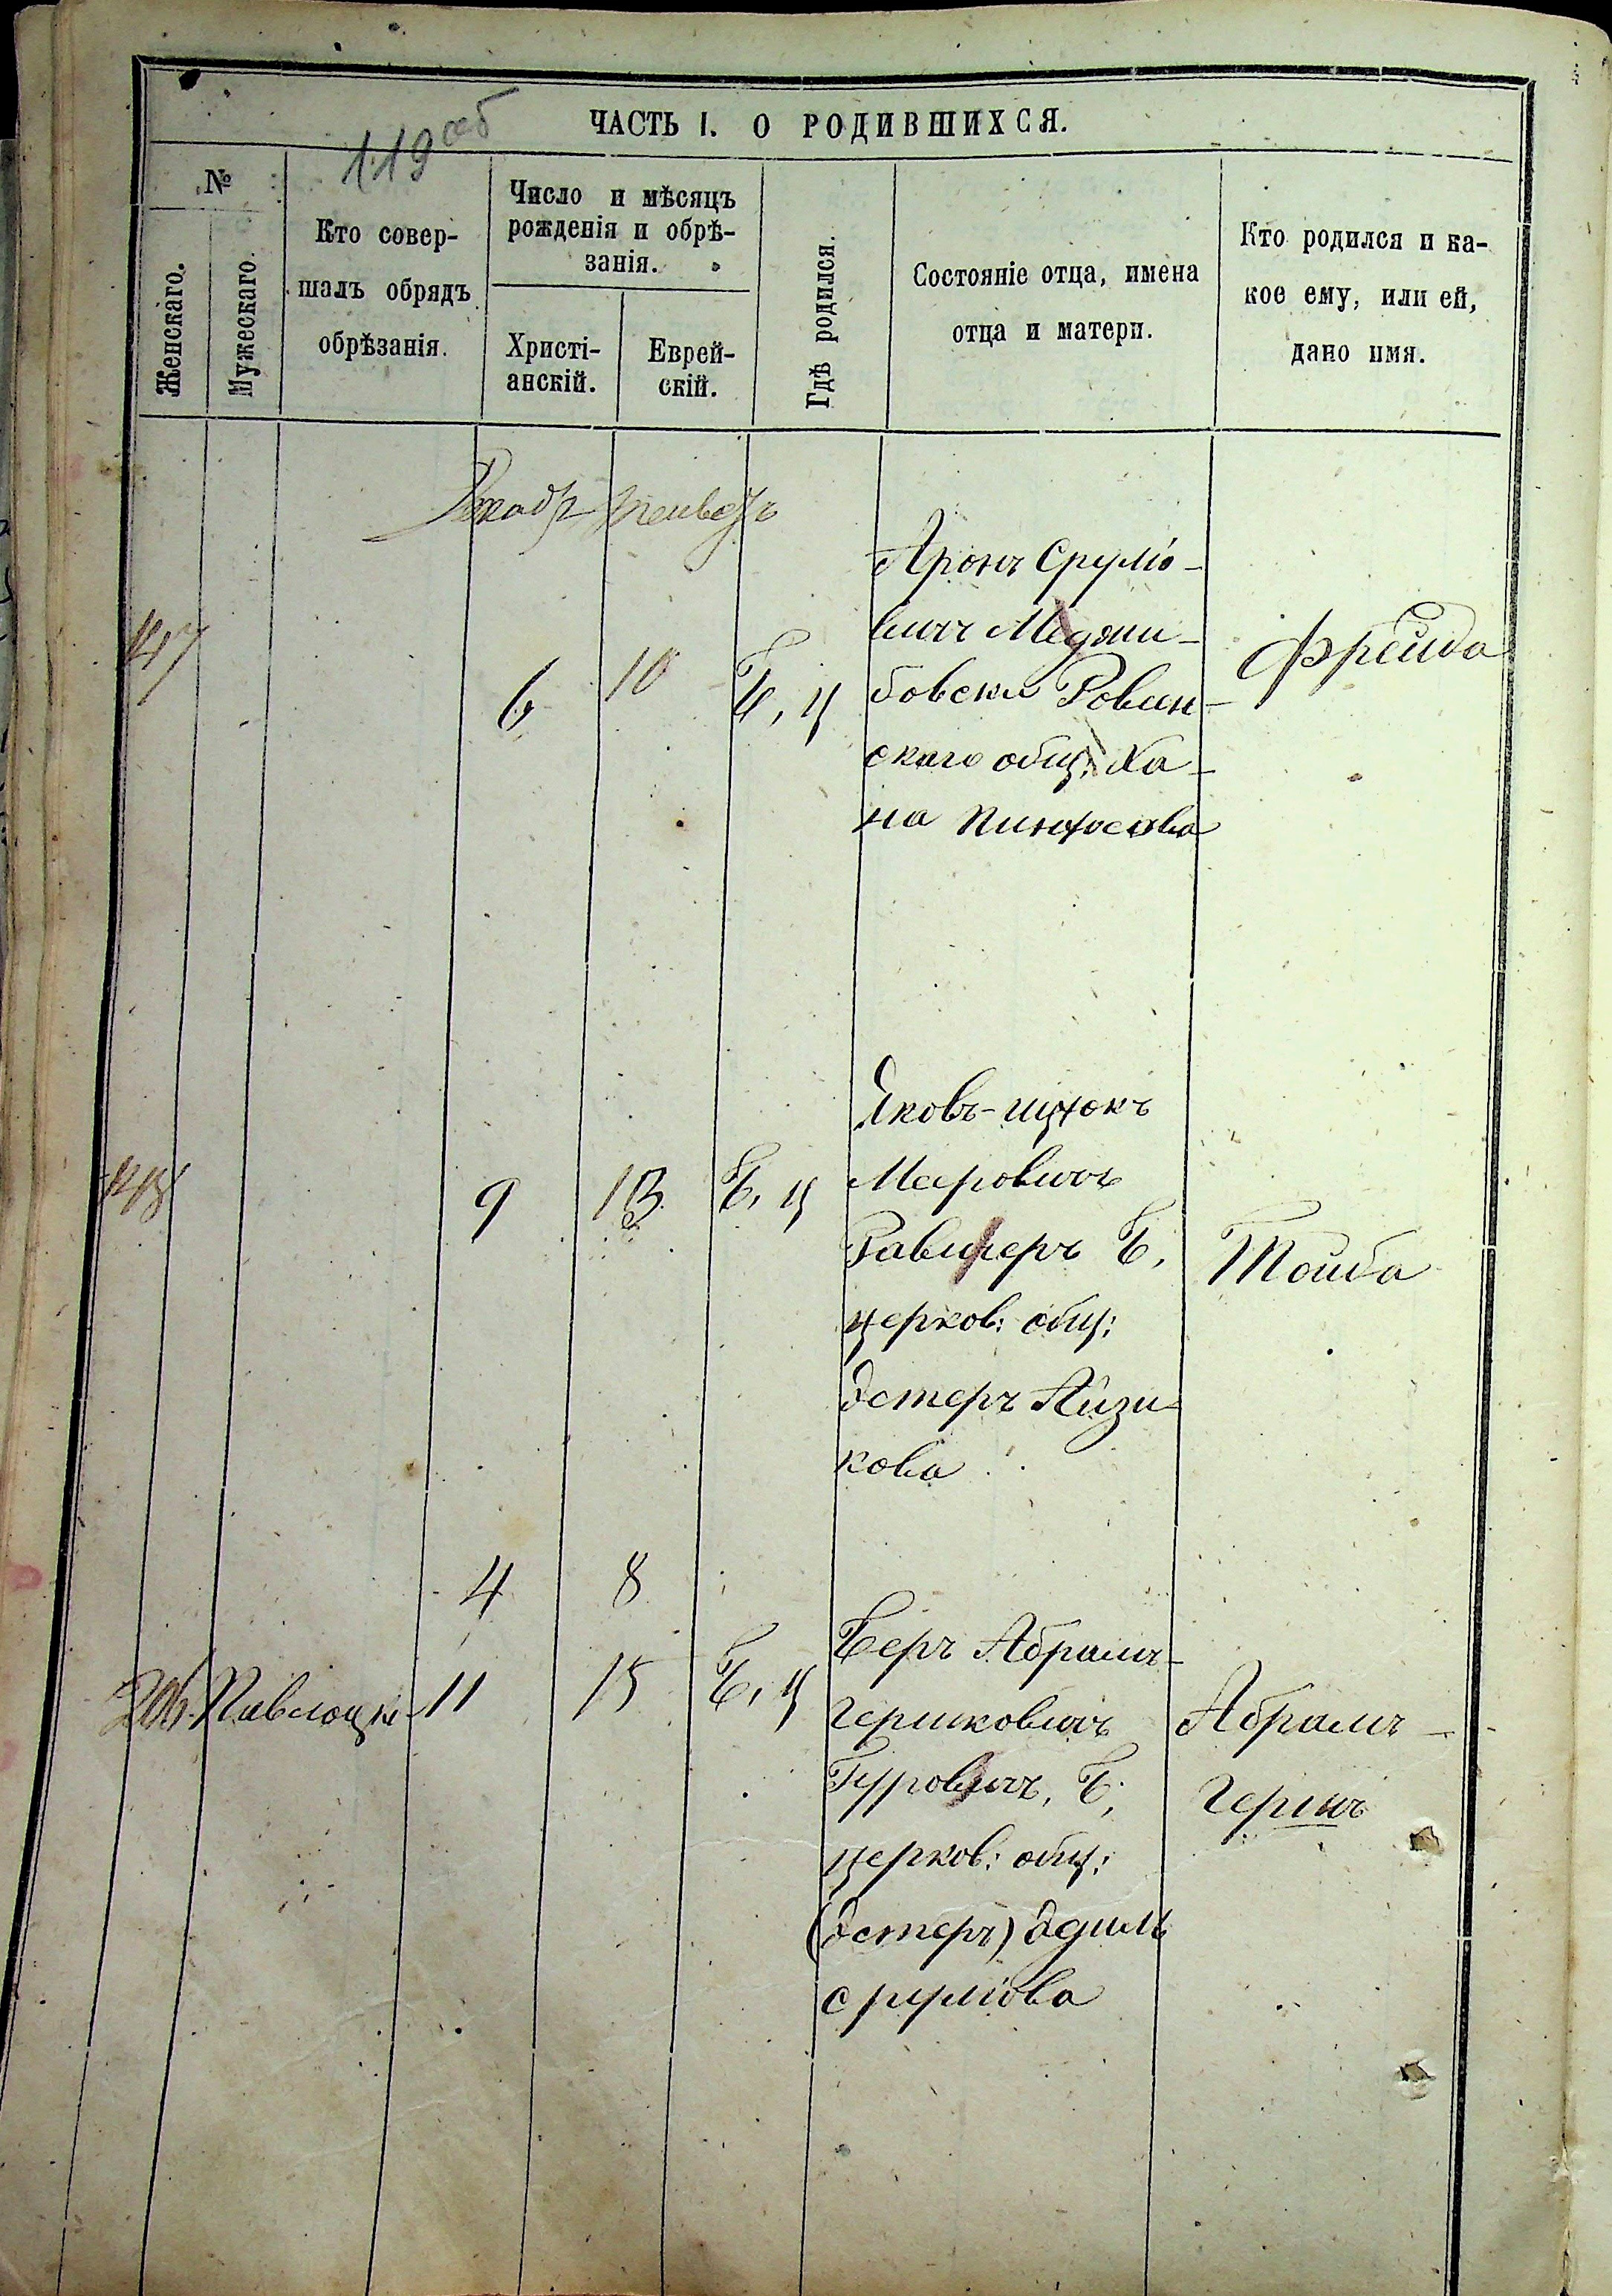 ЧАСТЬ I. О РОДИВШИХСЯ.
119 об
№
Женскаго.
Мужескаго.
Кто совер-
шалъ обрядъ
обрѣзанія.
Число и мѣсяцъ
рожденія и обрѣ-
занія.
Христі-
анскій.
Еврей-
скій.
Гдѣ родился.
Состояніе отца, имена
отца и матери.
Кто родился и ка-
кое ему, или ей,
дано имя.
Декабр
147
6
10
Б, ц
Аронъ Срулio-
вичъ Меджи-
бовски Ровин-
скаго общ: Ха-
на Пинхосова
Фрейда
148
9
13
Б, ц
Яковъ-ицхокъ
Мееровичъ
Б,
церков: общ:
Эстеръ Айзи-
кова
Тойба
4
8
206
Павлоцки
11
15
Б, ц
Беръ Абрамъ-
гершковичъ
Гуровичъ, Б,
церков: общ:
(Эстеръ) Эдиль
срулiова
Абрамъ-
Гершъ